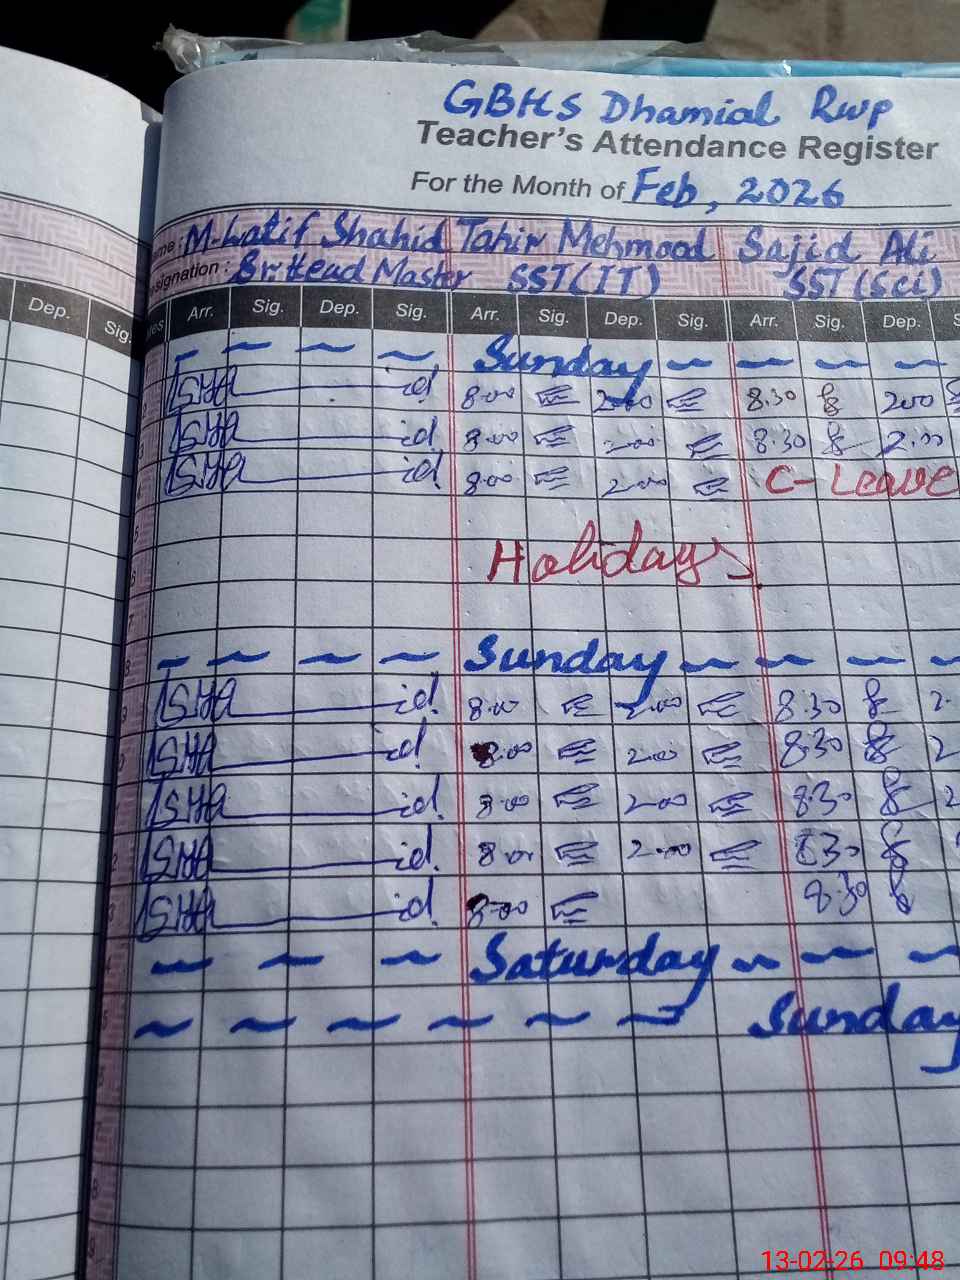 GBHS Dhamial Rwp
Teacher's Attendance Register
For the Month of Feb, 2026
M-Latif Shahid Tahir Mehmood Sajid Ali
Designation: Sr Head Master SST(IT) SST(Sci)
Dep. Sig. Arr. Sig. Dep. Sig. Arr. Sig. Dep. Sig. Arr. Sig. Dep.
Sunday
8.00 2.00 8.30 2.00
8.00 2.00 8.30 2.00
8.00 2.00 C-Leave
Holidays
Sunday
8.00 2.00 8.30 2.
8.00 2.00 8.30 2
8.00 2.00 8.30 2
8.00 2.00 8.30
8.00 8.30
Saturday
Sunday
13-02-26 09:48